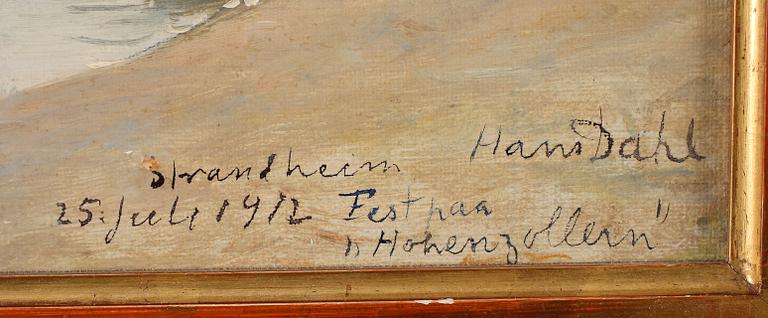 Hans Dahl
Strandheim
25. Juli 1912 Fest paa
„Hohenzollern"